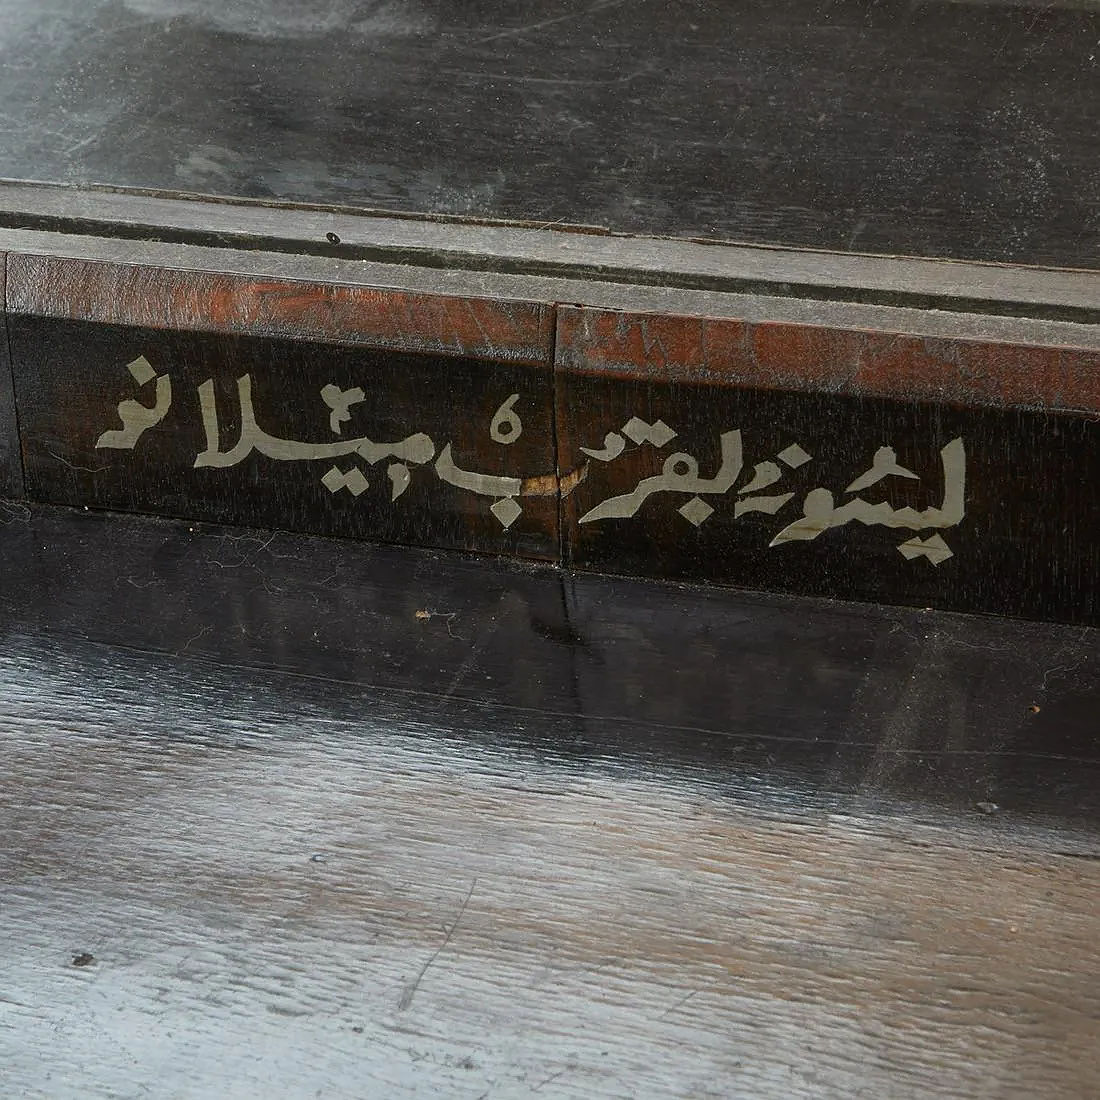 ليسونه بقرب ميلانو